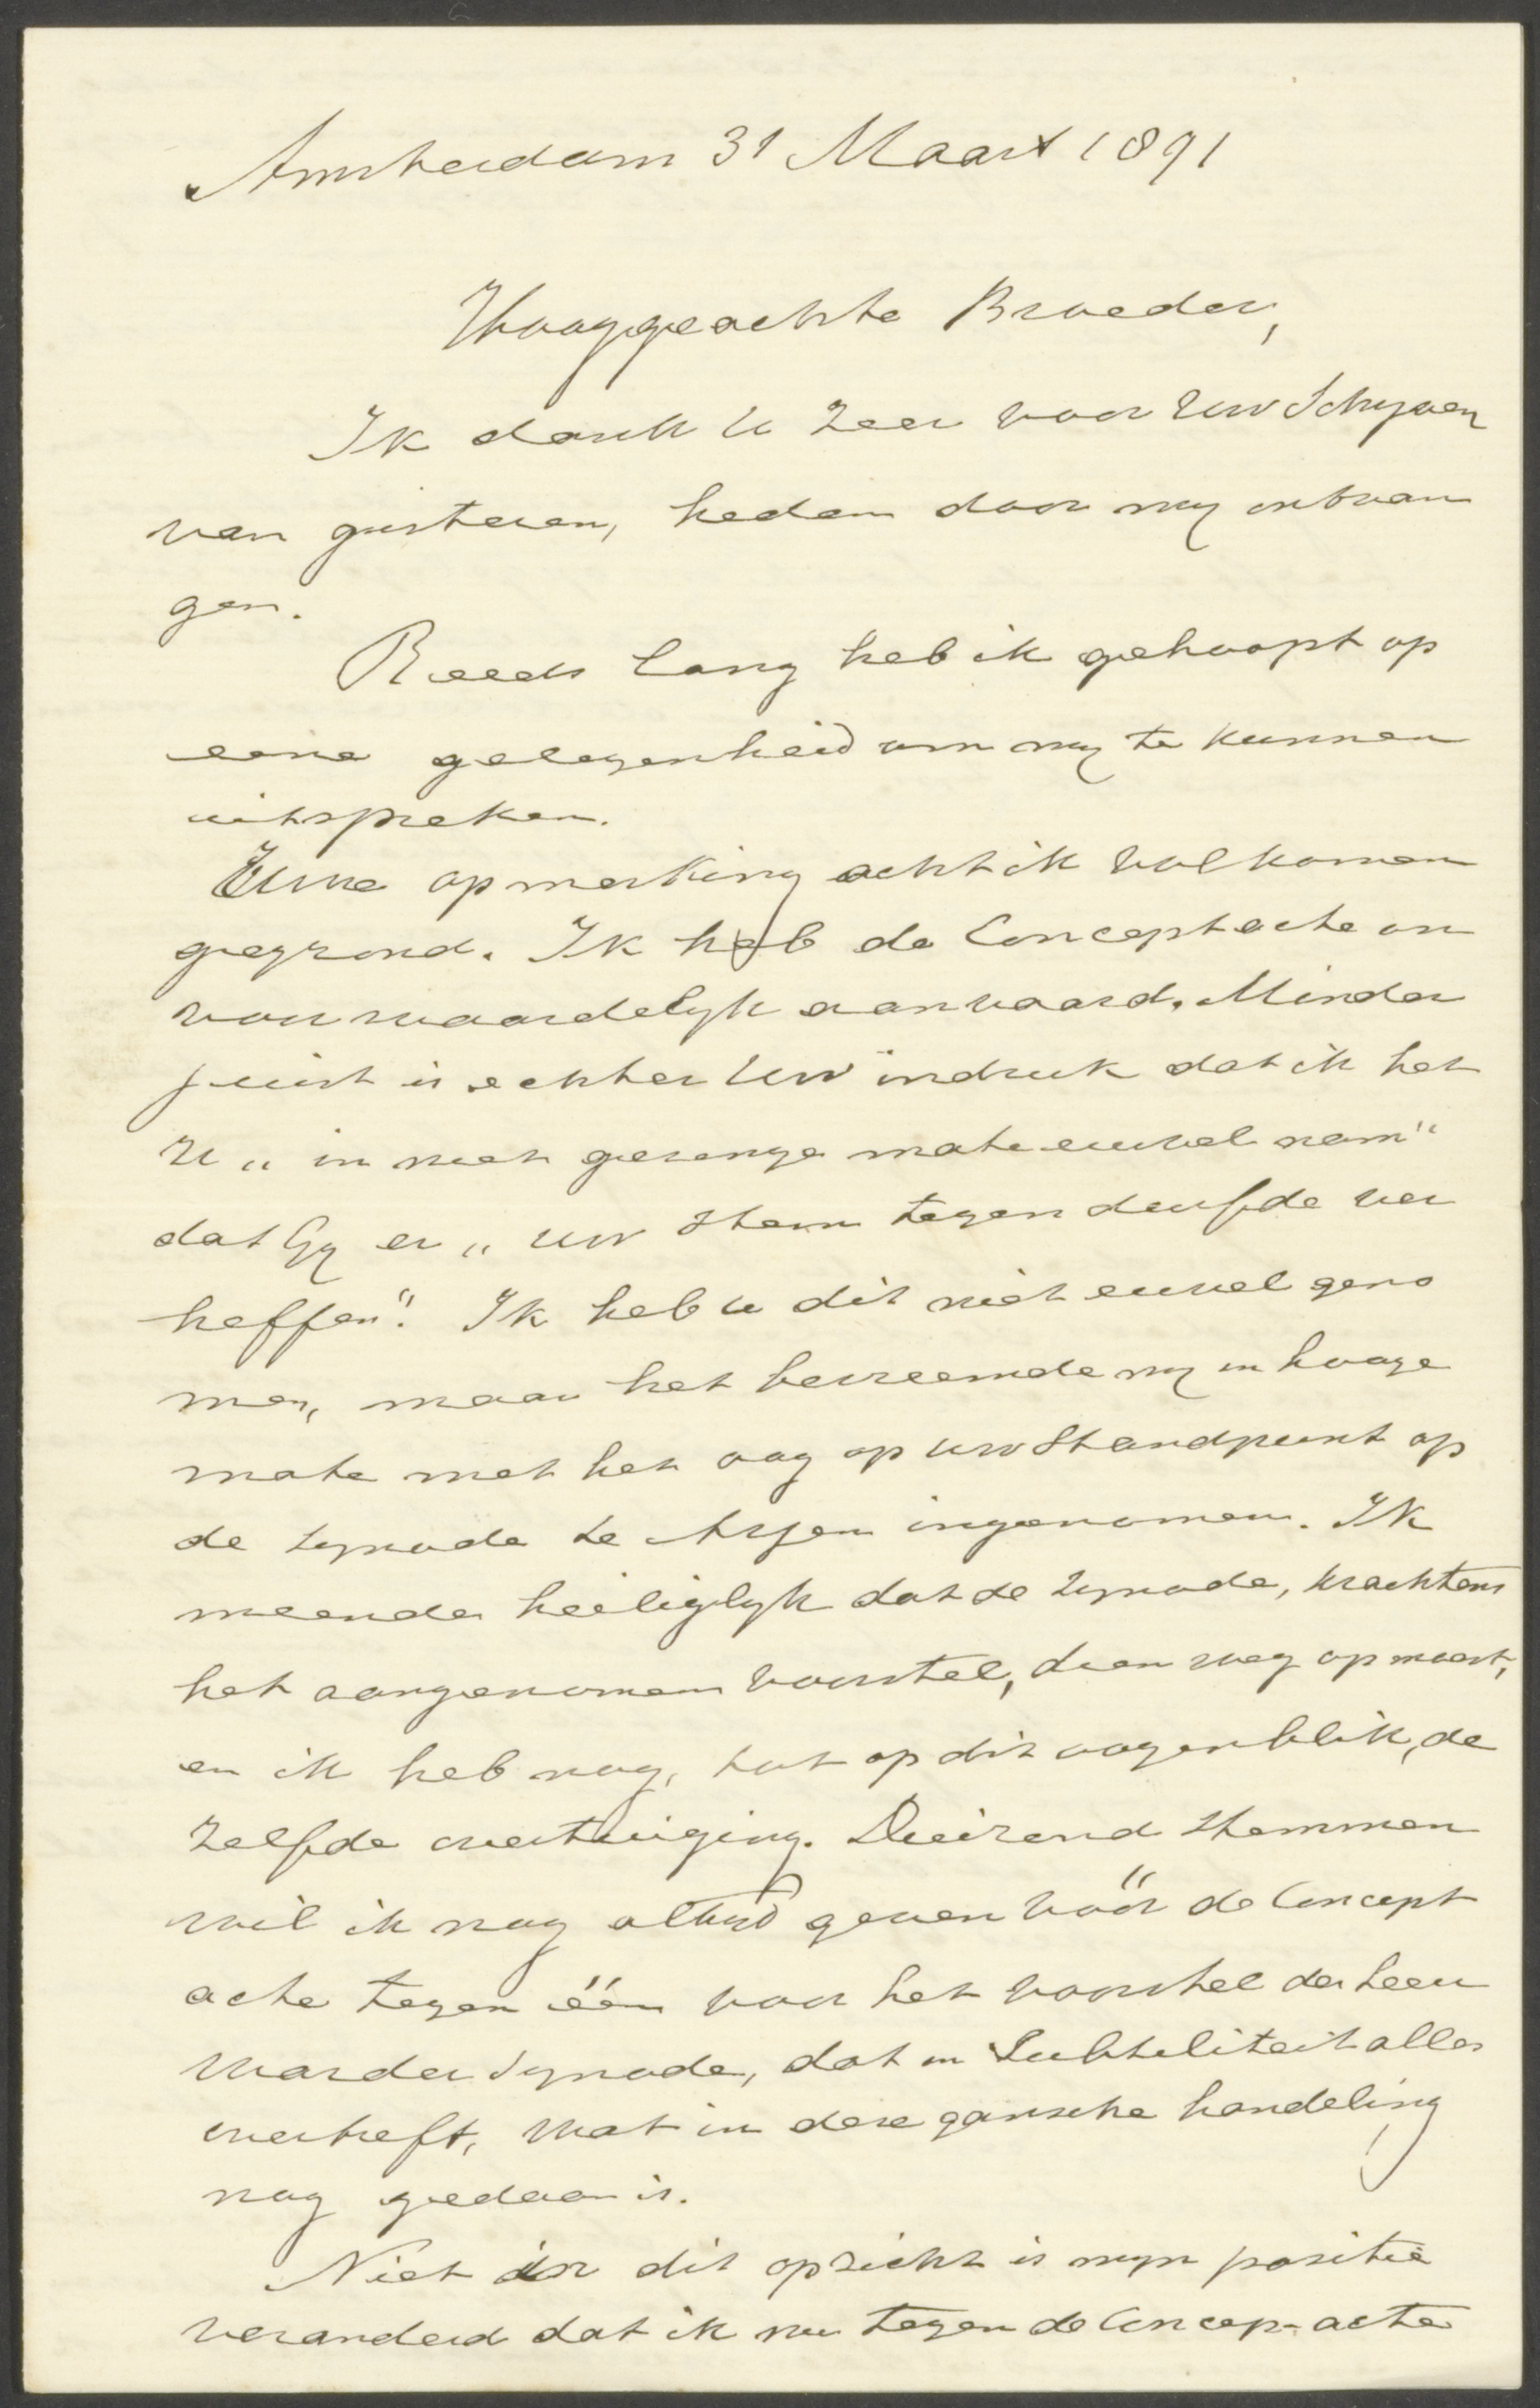 Amsterdam 31 Maart 1891
Hooggeachte Broeder,
Ik dank U zeer voor Uw Schrijven
van gisteren, heden door mij ontvan
gen.
Reeds lang heb ik gehoopt op
eene gelegenheid om mij te kunnen
uitspreken.
Uwe opmerking acht ik volkomen
gegrond. Ik heb de Conceptacte on
voorwaardelijk aanvaard. Minder
juist is echter Uw indruk dat ik het
U „in niet geringe mate euvel nam"
dat Gij er „Uw stem tegen durfde ver
heffen". Ik heb U dit niet euvel geno
men, maar het bevreemde mij in hooge
mate met het oog op Uw Standpunt op
de Synode te Assen ingenomen. Ik
meende heiliglijk dat de Synode, krachtens
het aangenomen voorstel, dien weg op moest,
en ik heb nog, tot op dit oogenblik, de
zelfde overtuiging. Duizend stemmen
wil ik nog altijd geven vóór de Concept
acte tegen één voor het voorstel der Leeu
warder Synode, dat in Subtiliteit alles
overtreft, wat in deze gansche handeling
nog gedaan is.
Niet in dit opzicht is mijn positie
veranderd dat ik nu tegen de Concep-acte